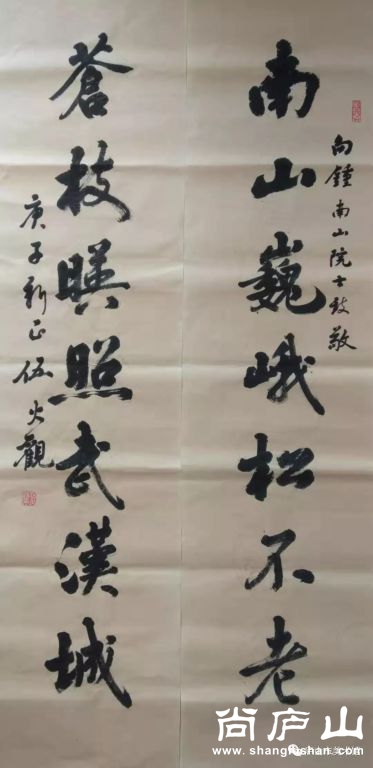 向鍾南山院士致敬
南山巍峨松不老
蒼枝暎照武漢城
庚子新正伍火觀
尚庐山
www.shanglushan.com